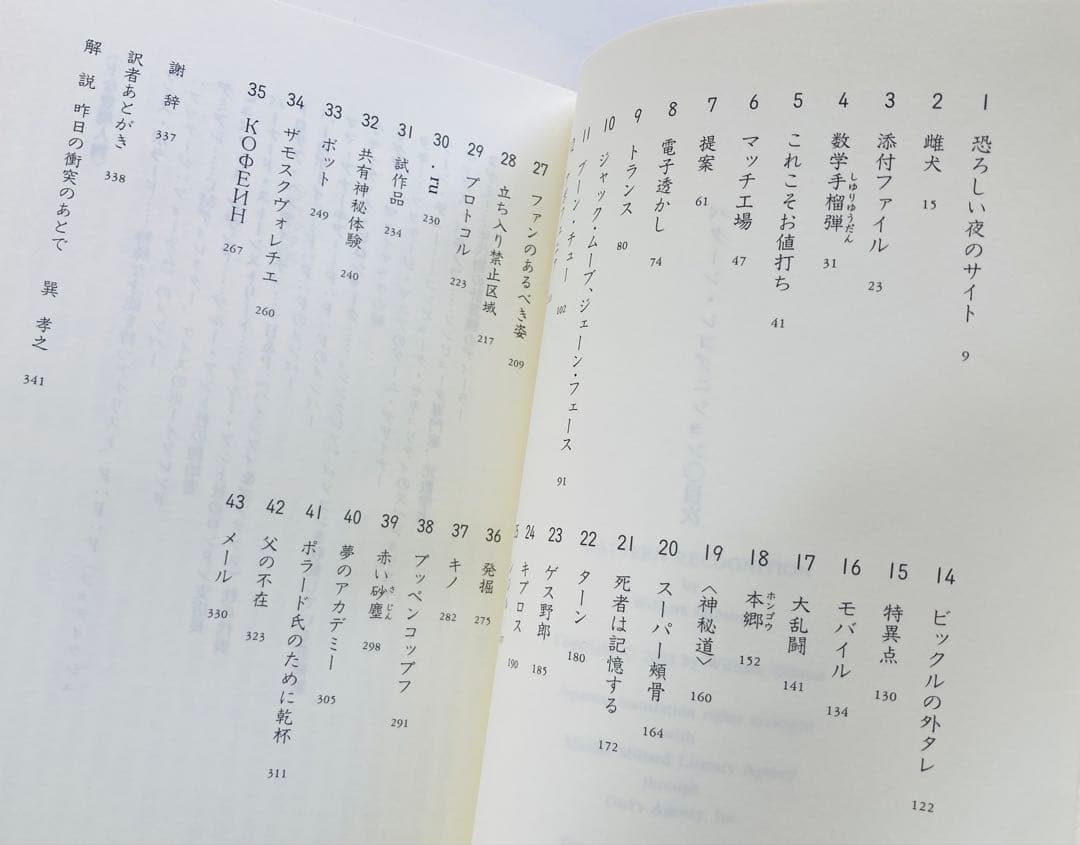 1 恐ろしい夜のサイト 9
2 雌犬 15
3 添付ファイル 23
4 数学手榴弾 31
しゅりゅうだん
5 これこそお値打ち 41
6 マッチ工場 47
7 提案 61
8 電子透かし 74
9 トランス 80
10 ジャック・ムーブ、ジェーン・フェース 91
11 ブーン・チュー 102
14 ビックルの外タレ 122
15 特異点 130
16 モバイル 134
17 大乱闘 141
18 本郷 152
ホンゴウ
19 〈神秘道〉 160
20 スーパー頰骨 164
21 死者は記憶する 172
22 ターン 180
23 ゲス野郎 185
24 キプロス 190
27 ファンのあるべき姿 209
28 立ち入り禁止区域 217
29 プロトコル 223
30 .ru 230
31 試作品 234
32 共有神秘体験 240
33 ボット 249
34 ザモスクヴォレチエ 260
35 КОФЕИН 267
謝辞 337
訳者あとがき 338
解説 昨日の衝突のあとで 巽孝之 341
36 発掘 275
37 キノ 282
38 プッペンコップフ 291
39 赤い砂塵 298
さじん
40 夢のアカデミー 305
41 ポラード氏のために乾杯 311
42 父の不在 323
43 メール 330